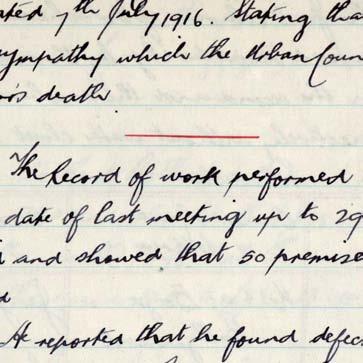 ated 7th July 1916. stating tha
sympathy which the Urban Coun
or's death
The Record of work performed
date of last meeting up to 29
and showed that 50 premise
d
He reported that he found defec